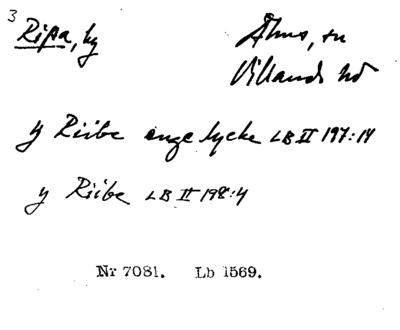 3 Ripa, by Åhus, sn
Villands hd
y Riibe enge lycke LB II 197:14
y Riibe LB II 198:4
Nr 7081. Lb 1569.